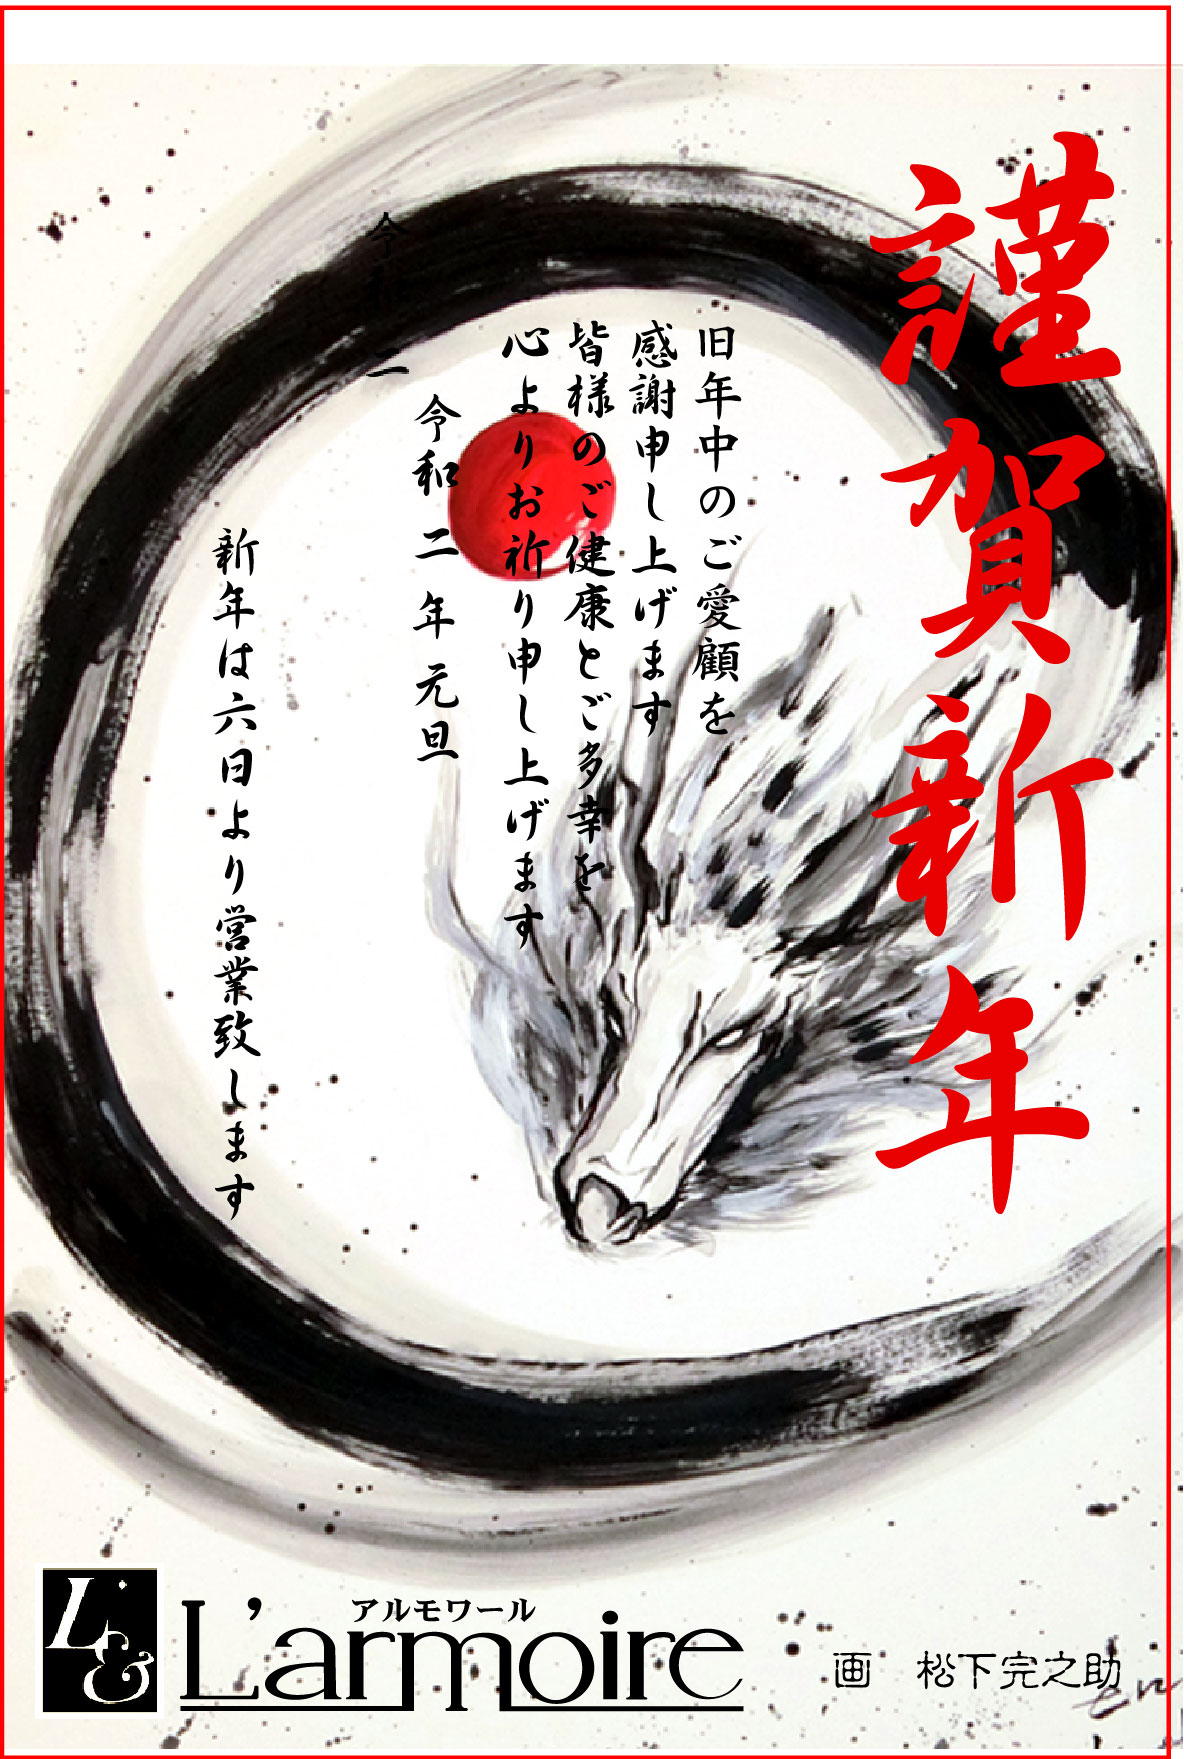 謹賀新年
旧年中のご愛顧を
感謝申し上げます
皆様のご健康とご多幸を
心よりお祈り申し上げます
令和二年元旦
令和二
新年は六日より営業致します
L'&
アルモワール
L'armoire
画 松下完之助